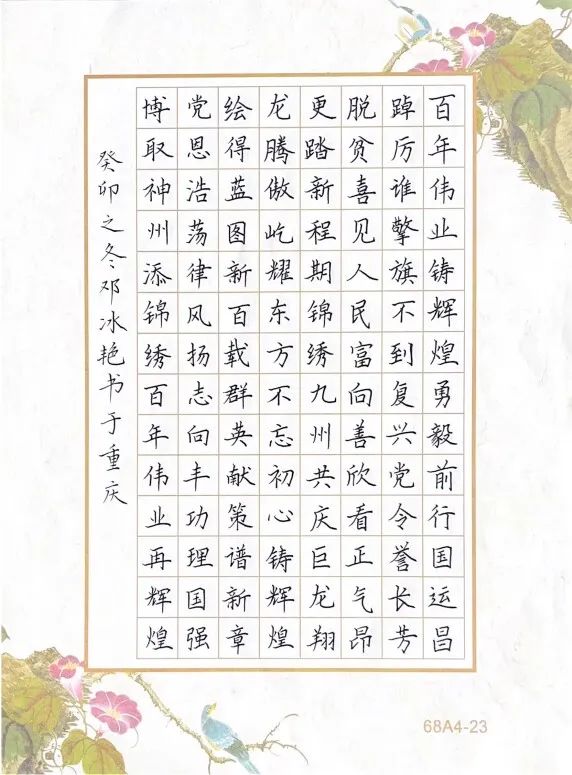 百年伟业铸辉煌勇毅前行国运昌
踔厉谁擎旗不到复兴党令誉长芳
脱贫喜见人民富向善欣看正气昂
更踏新程期锦绣九州共庆巨龙翔
龙腾傲屹耀东方不忘初心铸辉煌
绘得蓝图新百载群英献策谱新章
党恩浩荡律风扬志向丰功理国强
博取神州添锦绣百年伟业再辉煌
癸卯之冬邓冰艳书于重庆
68A4-23